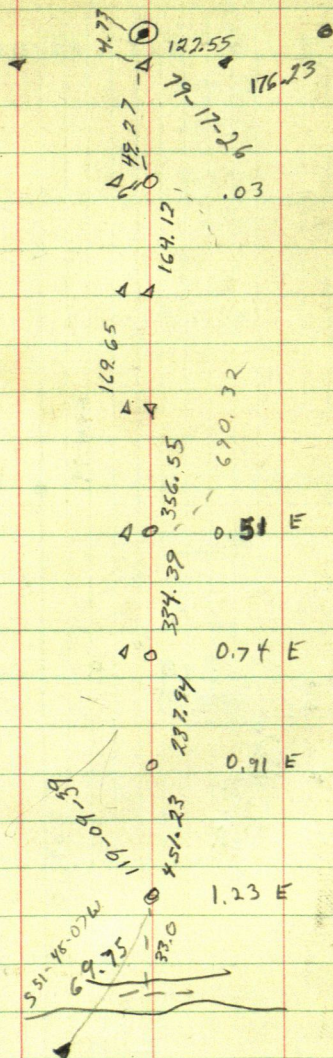 4.73
122.55
176.23
79-17-26
49.27
6"
.03
164.12
169.65
690.32
356.55
0.51 E
334.39
0.74 E
237.94
0.91 E
119-09-39
451.23
1.23 E
S 51-48-07 W
69.75
33.0